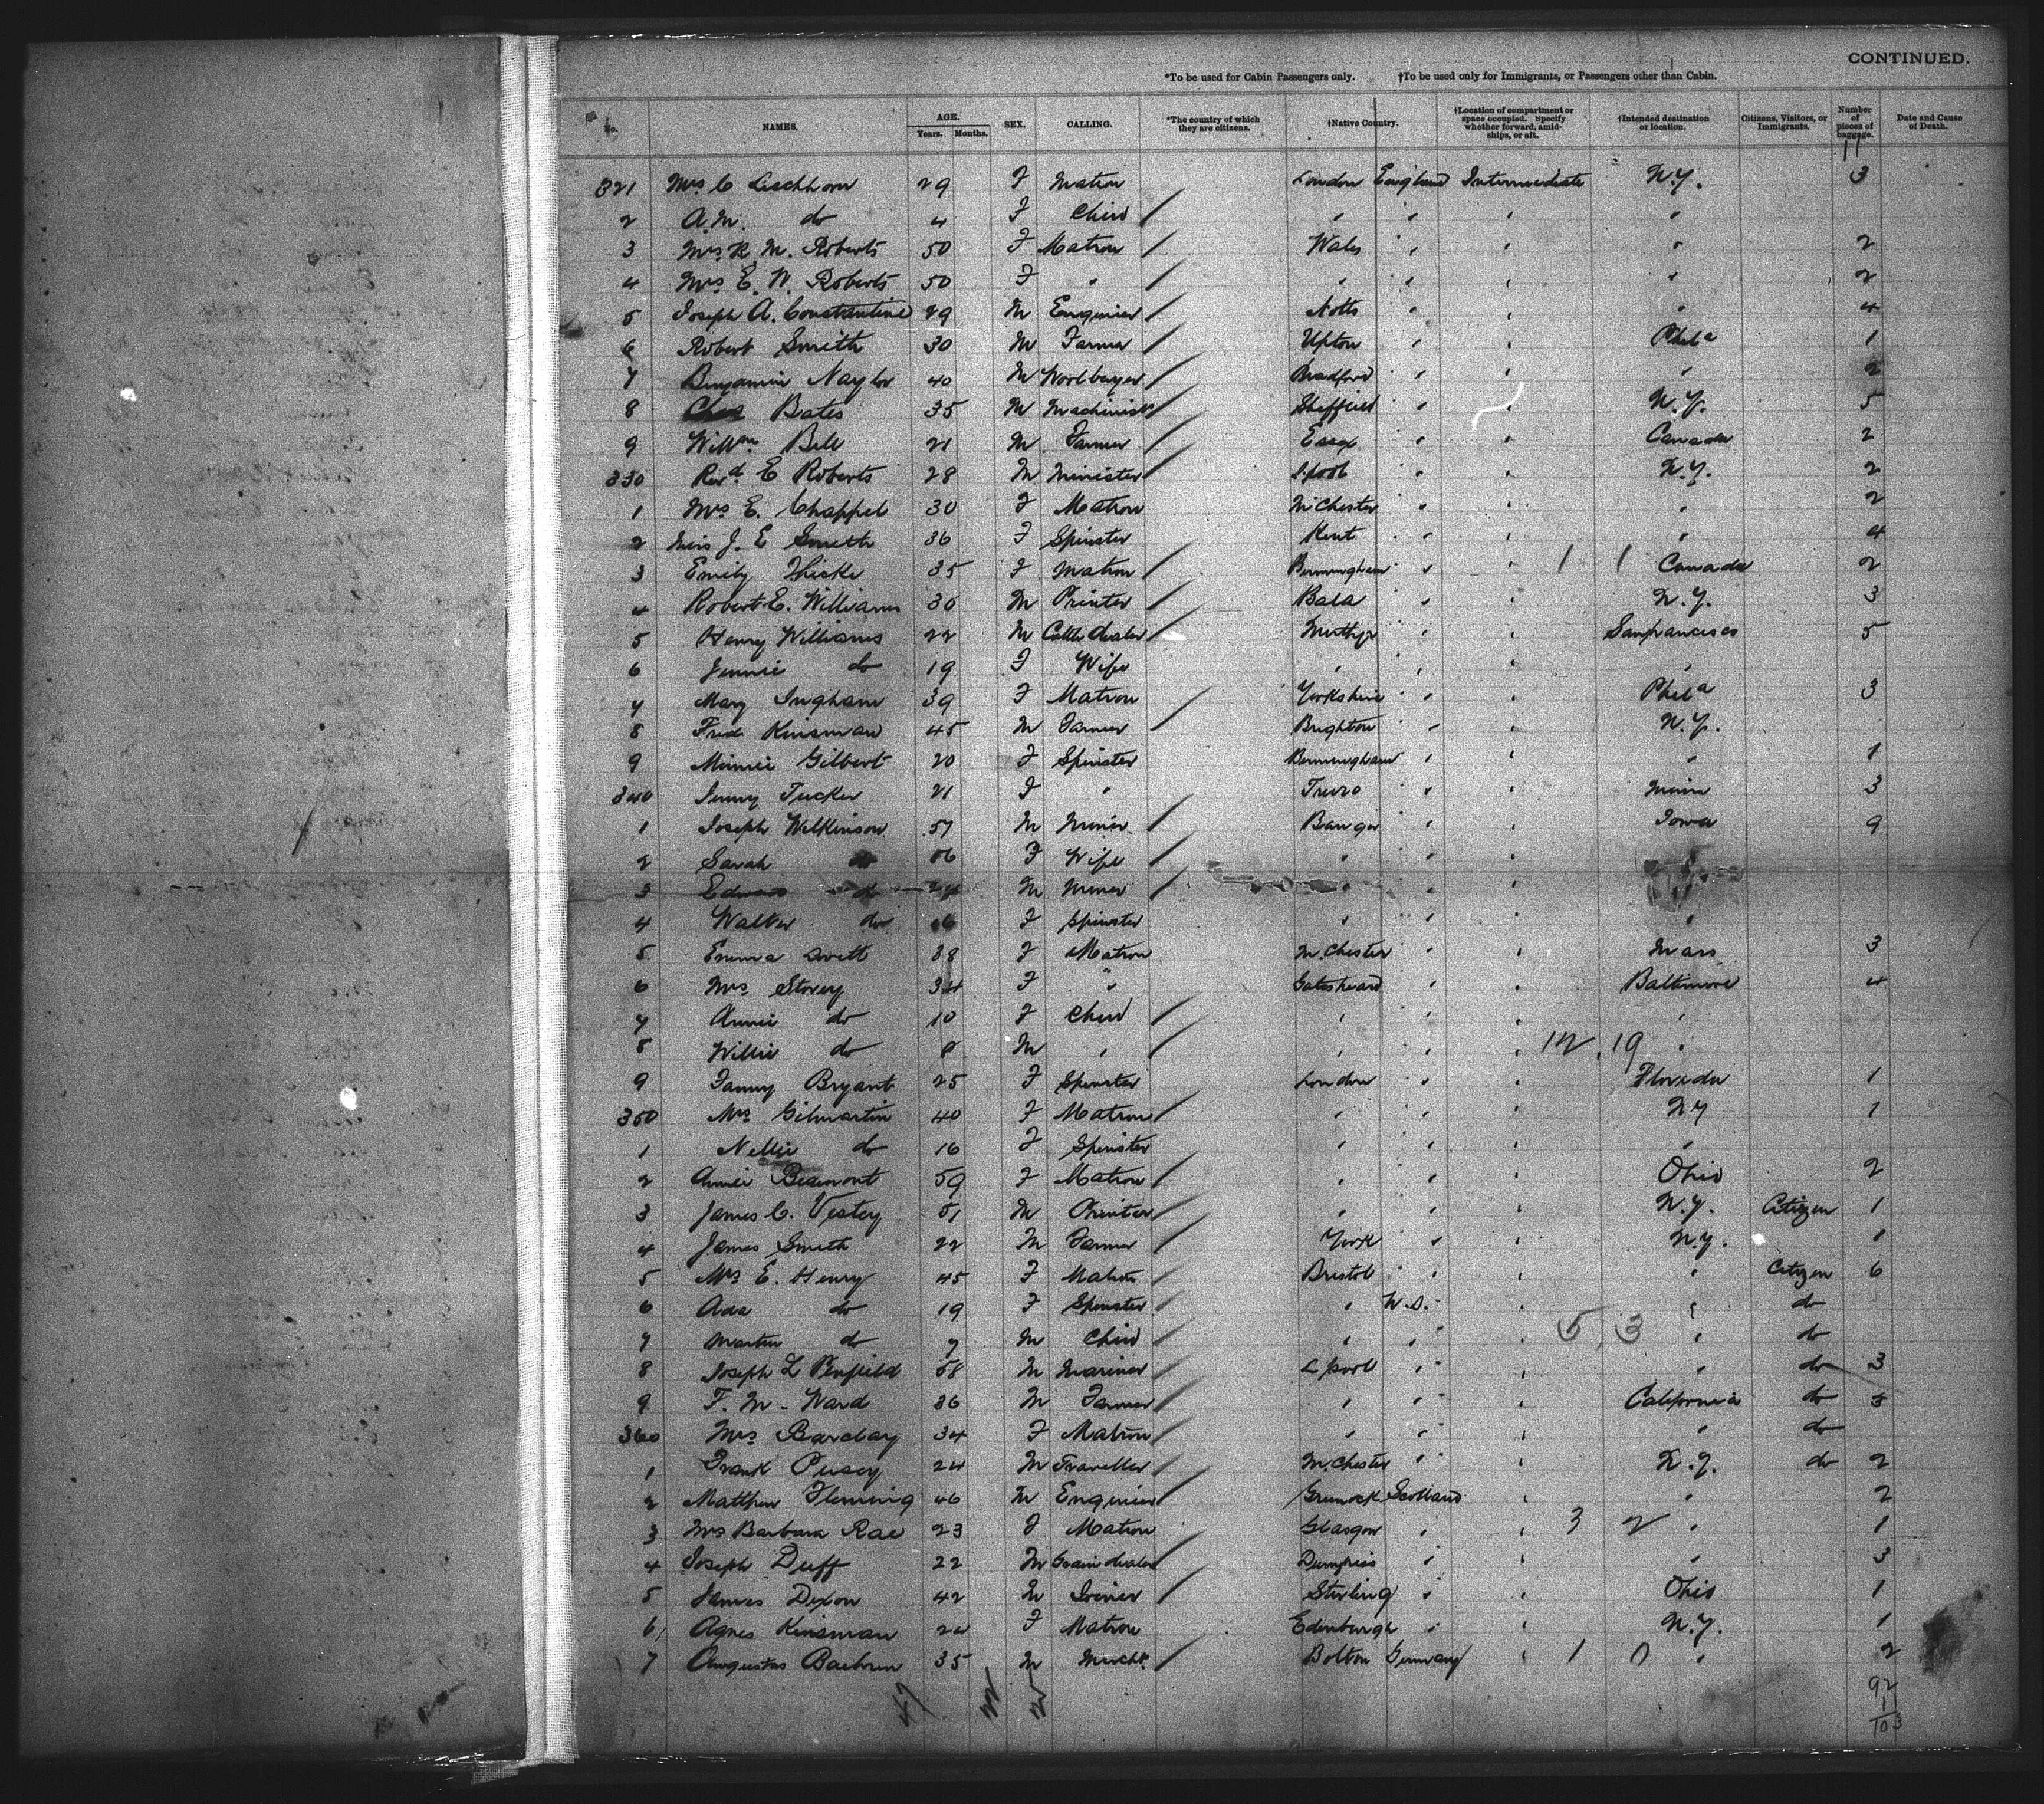 CONTINUED.
*To be used for Cabin Passengers only. †To be used only for Immigrants, or Passengers other than Cabin.
No. NAMES. AGE. Years. Months. SEX. CALLING. *The country of which they are citizens. †Native Country. †Location of compartment or space occupied. Specify whether forward, amidships, or aft. †Intended destination or location. Citizens, Visitors, or Immigrants. Number of pieces of baggage. Date and Cause of Death.
11
321 Mrs C 29 F Matron London England Intermediate N.Y. 3
2 A.M. do 4 F Child / " " " "
3 Mrs R. M. Roberts 50 F Matron / Wales " " " 2
4 Mrs E. W. Roberts 50 F " / " " " " 2
5 Joseph A. Constantine 29 M Engineer / Notts " " " 4
6 Robert Smith 30 M Farmer / Upton " " Phila 1
7 Benjamin Naylor 40 M Woolbuyer / Bradford " " " 2
8 Chas Bates 35 M Machinist / Sheffield " " N.Y. 5
9 Willm Bell 21 M Farmer / Essex " " Canada 2
330 Revd E Roberts 28 M Minister / L.pool " " N.Y. 2
1 Mrs E. Chappel 30 F Matron M.Chester " " " 2
2 Miss J. E Smith 36 F Spinster Kent " " " 4
3 Emily 35 F Matron / Birmingham " " 1 1 Canada 2
4 Robert E. Williams 36 M Printer / Bala " " N.Y. 3
5 Henry Williams 22 M Cattle dealer / Merthyr " " Sanfrancisco 5
6 Jennie do 19 F Wife " " " "
7 Mary Ingham 39 F Matron / Yorkshire " " Phila 3
8 Fred Kinsman 45 M Farmer / Brighton " " N.Y.
9 Minnie Gilbert 20 F Spinster Birmingham " " " 1
340 Jenny Tucker 21 F " Truro " " Minn 3
1 Joseph Wilkinson 57 M Miner / Bangor " " Iowa 9
2 Sarah do 56 F Wife / " " " "
3 Edward do M Miner / " " " "
4 Walter do 16 F Spinster " " " "
5 Emma 38 F Matron M.Chester " " Mass 3
6 Mrs Storey 34 F " Gateshead " " Baltimore 4
7 Annie do 10 F Child / " " " "
8 Willie do 8 M " / " " " 12 19 "
9 Fanny Bryant 25 F Spinster London " " Florida 1
350 Mrs Gilmartin 40 F Matron / " " " NY 1
1 Nellie do 16 F Spinster " " " "
2 Annie Beaumont 59 F Matron / " " " Ohio 2
3 James C. Vestey 51 M Printer / " " " N.Y. Citizen 1
4 James Smith 22 M Farmer / York " " N.Y. 1
5 Mrs E. Henry 45 F Matron / Bristol " " " Citizen 6
6 Ada do 19 F Spinster / " U.S. " " do
7 Martin do 7 M Child / " " " 5 3 " do
8 Joseph L Penfield 58 M Mariner / L.pool " " " do 3
9 F. M. Ward 36 M Farmer / " " " California do 3
360 Mrs Barclay 34 F Matron / " " " " do
1 Frank Pusey 24 M Traveller / M.Chester " " N.Y. do 2
2 Matthew Fleming 46 M Engineer / Greenock Scotland " " 2
3 Mrs Barbara Rae 23 F Matron Glasgow " " 3 2 " 1
4 Joseph Duff 22 M Grain dealer / Dumfries " " " 3
5 James Dixon 42 M Joiner / Stirling " " Ohio 1
6 Agnes Kinsman 24 F Matron Edinburgh " " N.Y. 1
7 Augustus 35 M Marcht. / Bolton Germany " 1 0 " 2
47 22 25
92
11
103